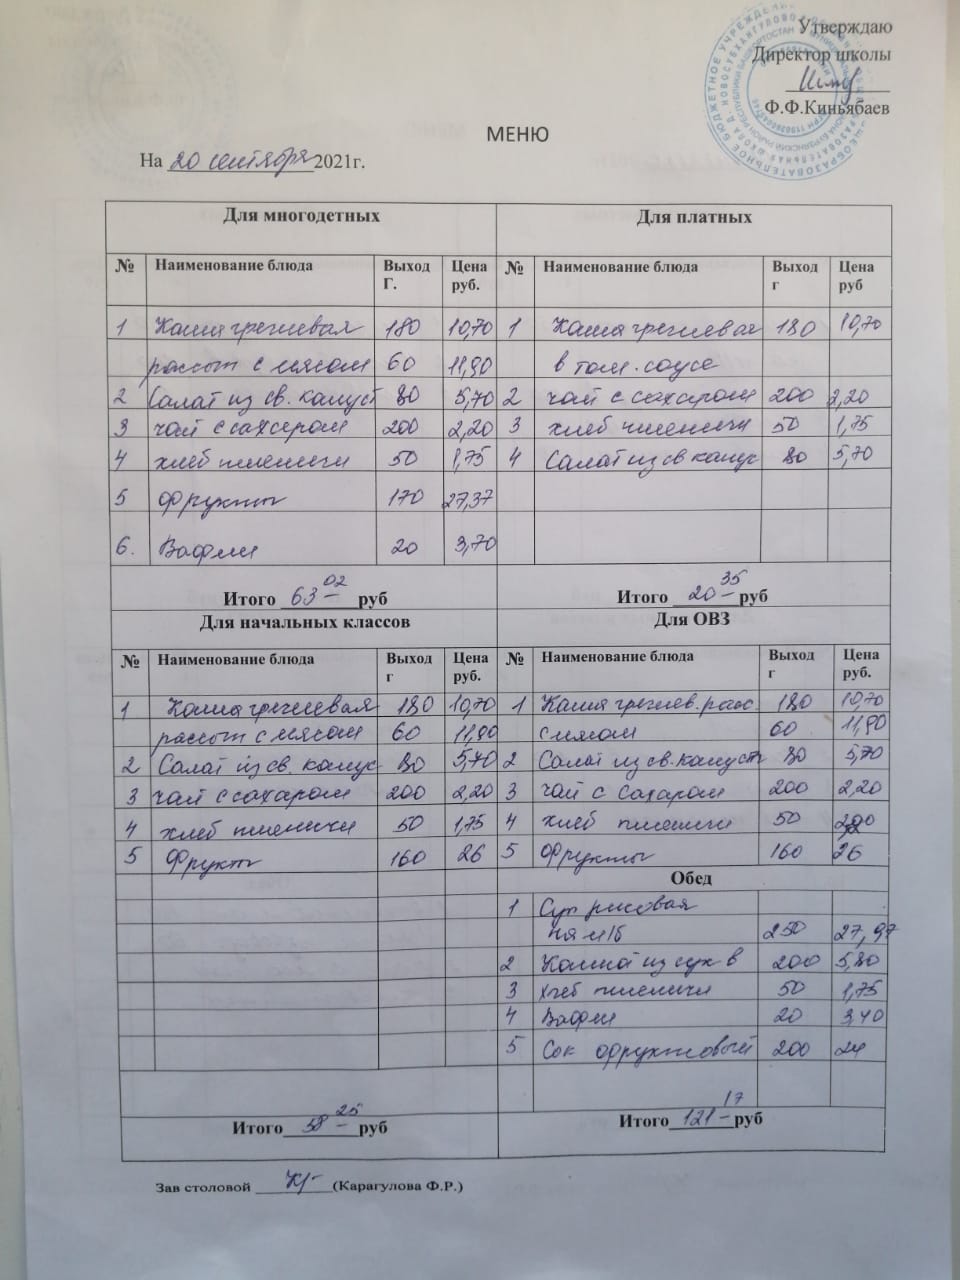 Утверждаю
Директор школы
Ф.Ф.Киньябаев
МЕНЮ
На 20 сентября 2021г.
Для многодетных Для платных
№ Наименование блюда Выход Г. Цена руб. № Наименование блюда Выход г Цена руб
1 Каша гречневая 180 10,70 1 Каша гречневая 180 10,70
рассып с мясом 60 11,90 в том. соусе
2 Салат из св. капуст 80 5,70 2 чай с сахаром 200 2,20
3 чай с сахаром 200 2,20 3 хлеб пшенични 50 1,75
4 хлеб пшенични 50 1,75 4 Салат из св капус 80 5,70
5 Фрукты 170 27,37
6. Вафли 20 3,70
Итого 63-02 руб Итого 20-35 руб
Для начальных классов Для ОВЗ
№ Наименование блюда Выход г Цена руб. № Наименование блюда Выход г Цена руб.
1 Каша гречневая 180 10,70 1 Каша гречнев. расс. 180 10,70
рассып с мясом 60 11,90 с мясом 60 11,90
2 Салат из св. капус 80 5,70 2 Салат из св. капуст 80 5,70
3 чай с сахаром 200 2,20 3 чай с сахаром 200 2,20
4 хлеб пшенични 50 1,75 4 хлеб пшенични 50
5 Фрукты 160 26 5 Фрукты 160 26
Обед
1 Суп рисовая
на м/б 250 27,97
2 Компот из сух в 200 5,80
3 хлеб пшенични 50 1,75
4 Вафли 20 3,40
5 Сок фруктовый 200 24
Итого 58-25 руб Итого 121-17 руб
Зав столовой (Карагулова Ф.Р.)